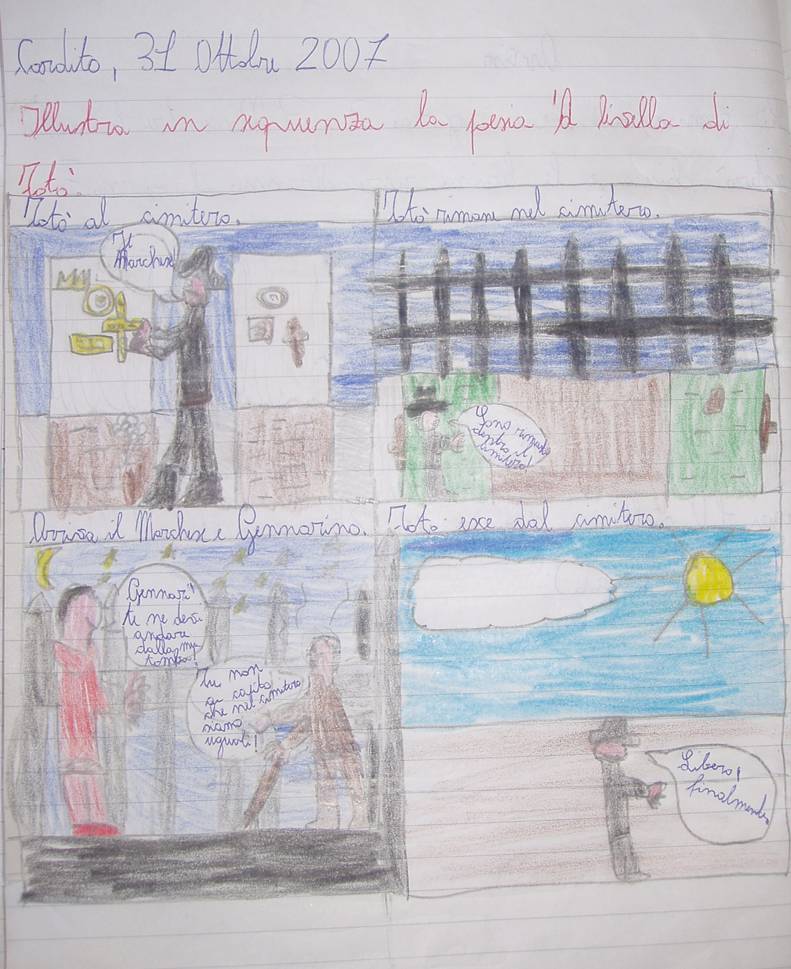 Cardito, 31 Ottobre 2007
Illustra in sequenza la poesia 'A livella di
Totò.
Totò al cimitero.
Il
Marchese
Totò rimane nel cimitero.
Sono rimasto
dentro il
cimitero!
Arriva il Marchese e Gennarino.
Gennari'
te ne devi
andare
dalla mia
tomba!
Tu non
ai capito
che nel cimitero
siamo
uguali!
Totò esce dal cimitero.
Libero!
finalmente